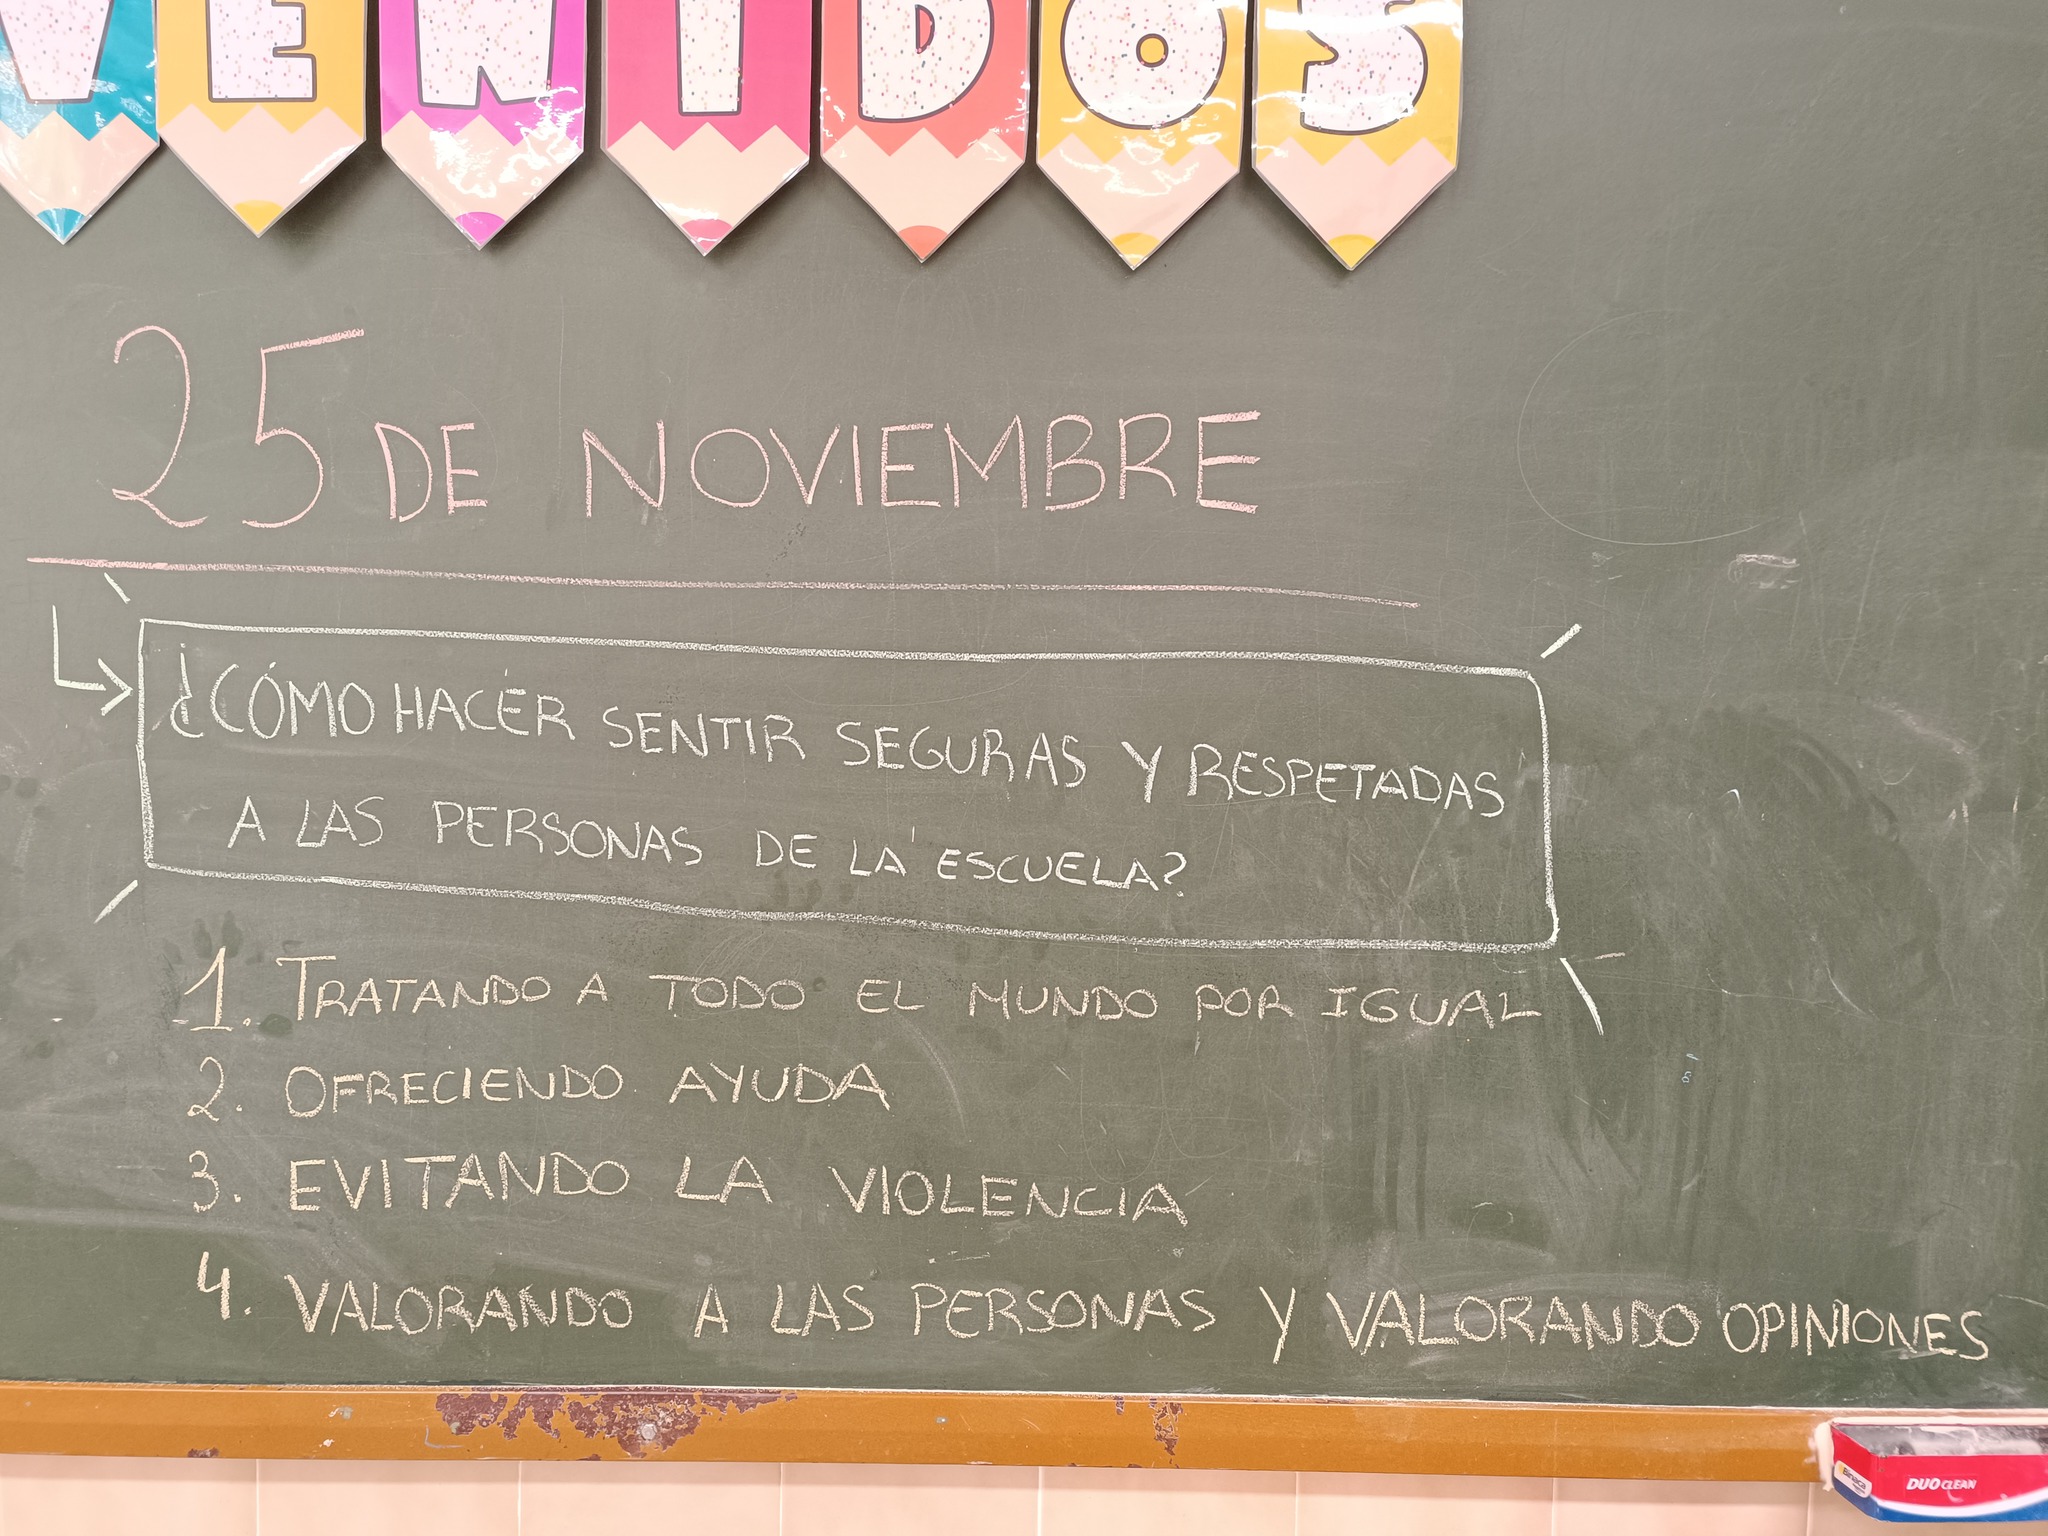 VENIDOS
25 DE NOVIEMBRE
¿CÓMO HACER SENTIR SEGURAS Y RESPETADAS
A LAS PERSONAS DE LA ESCUELA?
1. TRATANDO A TODO EL MUNDO POR IGUAL
2. OFRECIENDO AYUDA
3. EVITANDO LA VIOLENCIA
4. VALORANDO A LAS PERSONAS Y VALORANDO OPINIONES
Binaca
DUO CLEAN